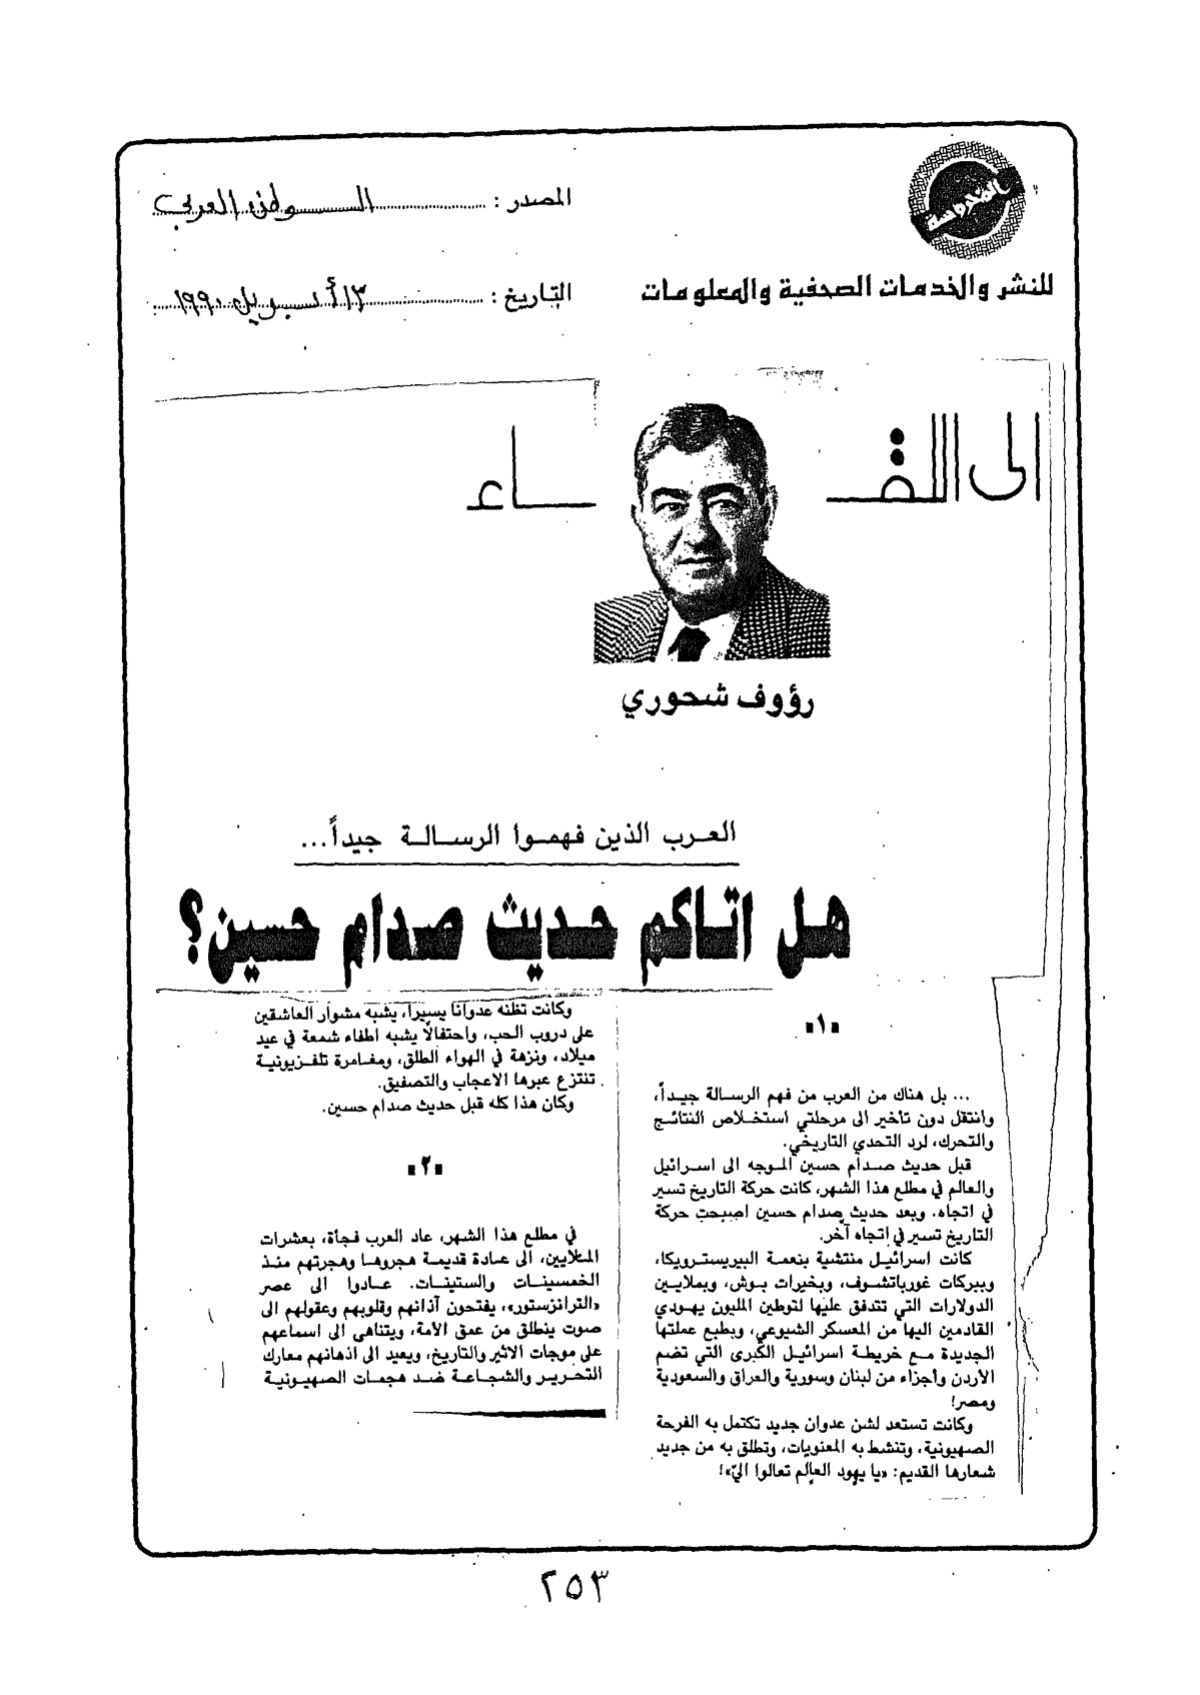 المحروسة
للنشر والخدمات الصحفية والمعلومات
المصدر : الوطن العربي
التاريخ : ١٣ أبريل ١٩٩٠
الى اللقاء
رؤوف شحوري
العرب الذين فهموا الرسالة جيداً...
هل اتاكم حديث صدام حسين؟
«١»
... بل هناك من العرب من فهم الرسالة جيداً،
وانتقل دون تأخير الى مرحلتي استخلاص النتائج
والتحرك، لرد التحدي التاريخي.
قبل حديث صدام حسين الموجه الى اسرائيل
والعالم في مطلع هذا الشهر، كانت حركة التاريخ تسير
في اتجاه. وبعد حديث صدام حسين اصبحت حركة
التاريخ تسير في اتجاه آخر.
كانت اسرائيل منتشية بنعمة البيريسترويكا،
وببركات غورباتشوف، وبخيرات بوش، وبملايين
الدولارات التي تتدفق عليها لتوطين المليون يهودي
القادمين اليها من المعسكر الشيوعي، وبطبع عملتها
الجديدة مع خريطة اسرائيل الكبرى التي تضم
الأردن وأجزاء من لبنان وسورية والعراق والسعودية
ومصر!
وكانت تستعد لشن عدوان جديد تكتمل به الفرحة
الصهيونية، وتنشط به المعنويات، وتطلق به من جديد
شعارها القديم: «يا يهود العالم تعالوا اليّ»!
وكانت تظنه عدواناً يسيراً، يشبه مشوار العاشقين
على دروب الحب، واحتفالاً يشبه اطفاء شمعة في عيد
ميلاد، ونزهة في الهواء الطلق، ومغامرة تلفزيونية
تنتزع عبرها الاعجاب والتصفيق.
وكان هذا كله قبل حديث صدام حسين.
«٢»
في مطلع هذا الشهر، عاد العرب فجأة، بعشرات
الملايين، الى عادة قديمة هجروها وهجرتهم منذ
الخمسينات والستينات. عادوا الى عصر
«الترانزستور»، يفتحون آذانهم وقلوبهم وعقولهم الى
صوت ينطلق من عمق الأمة، ويتناهى الى اسماعهم
على موجات الاثير والتاريخ، ويعيد الى اذهانهم معارك
التحرير والشجاعة ضد هجمات الصهيونية
٢٥٣